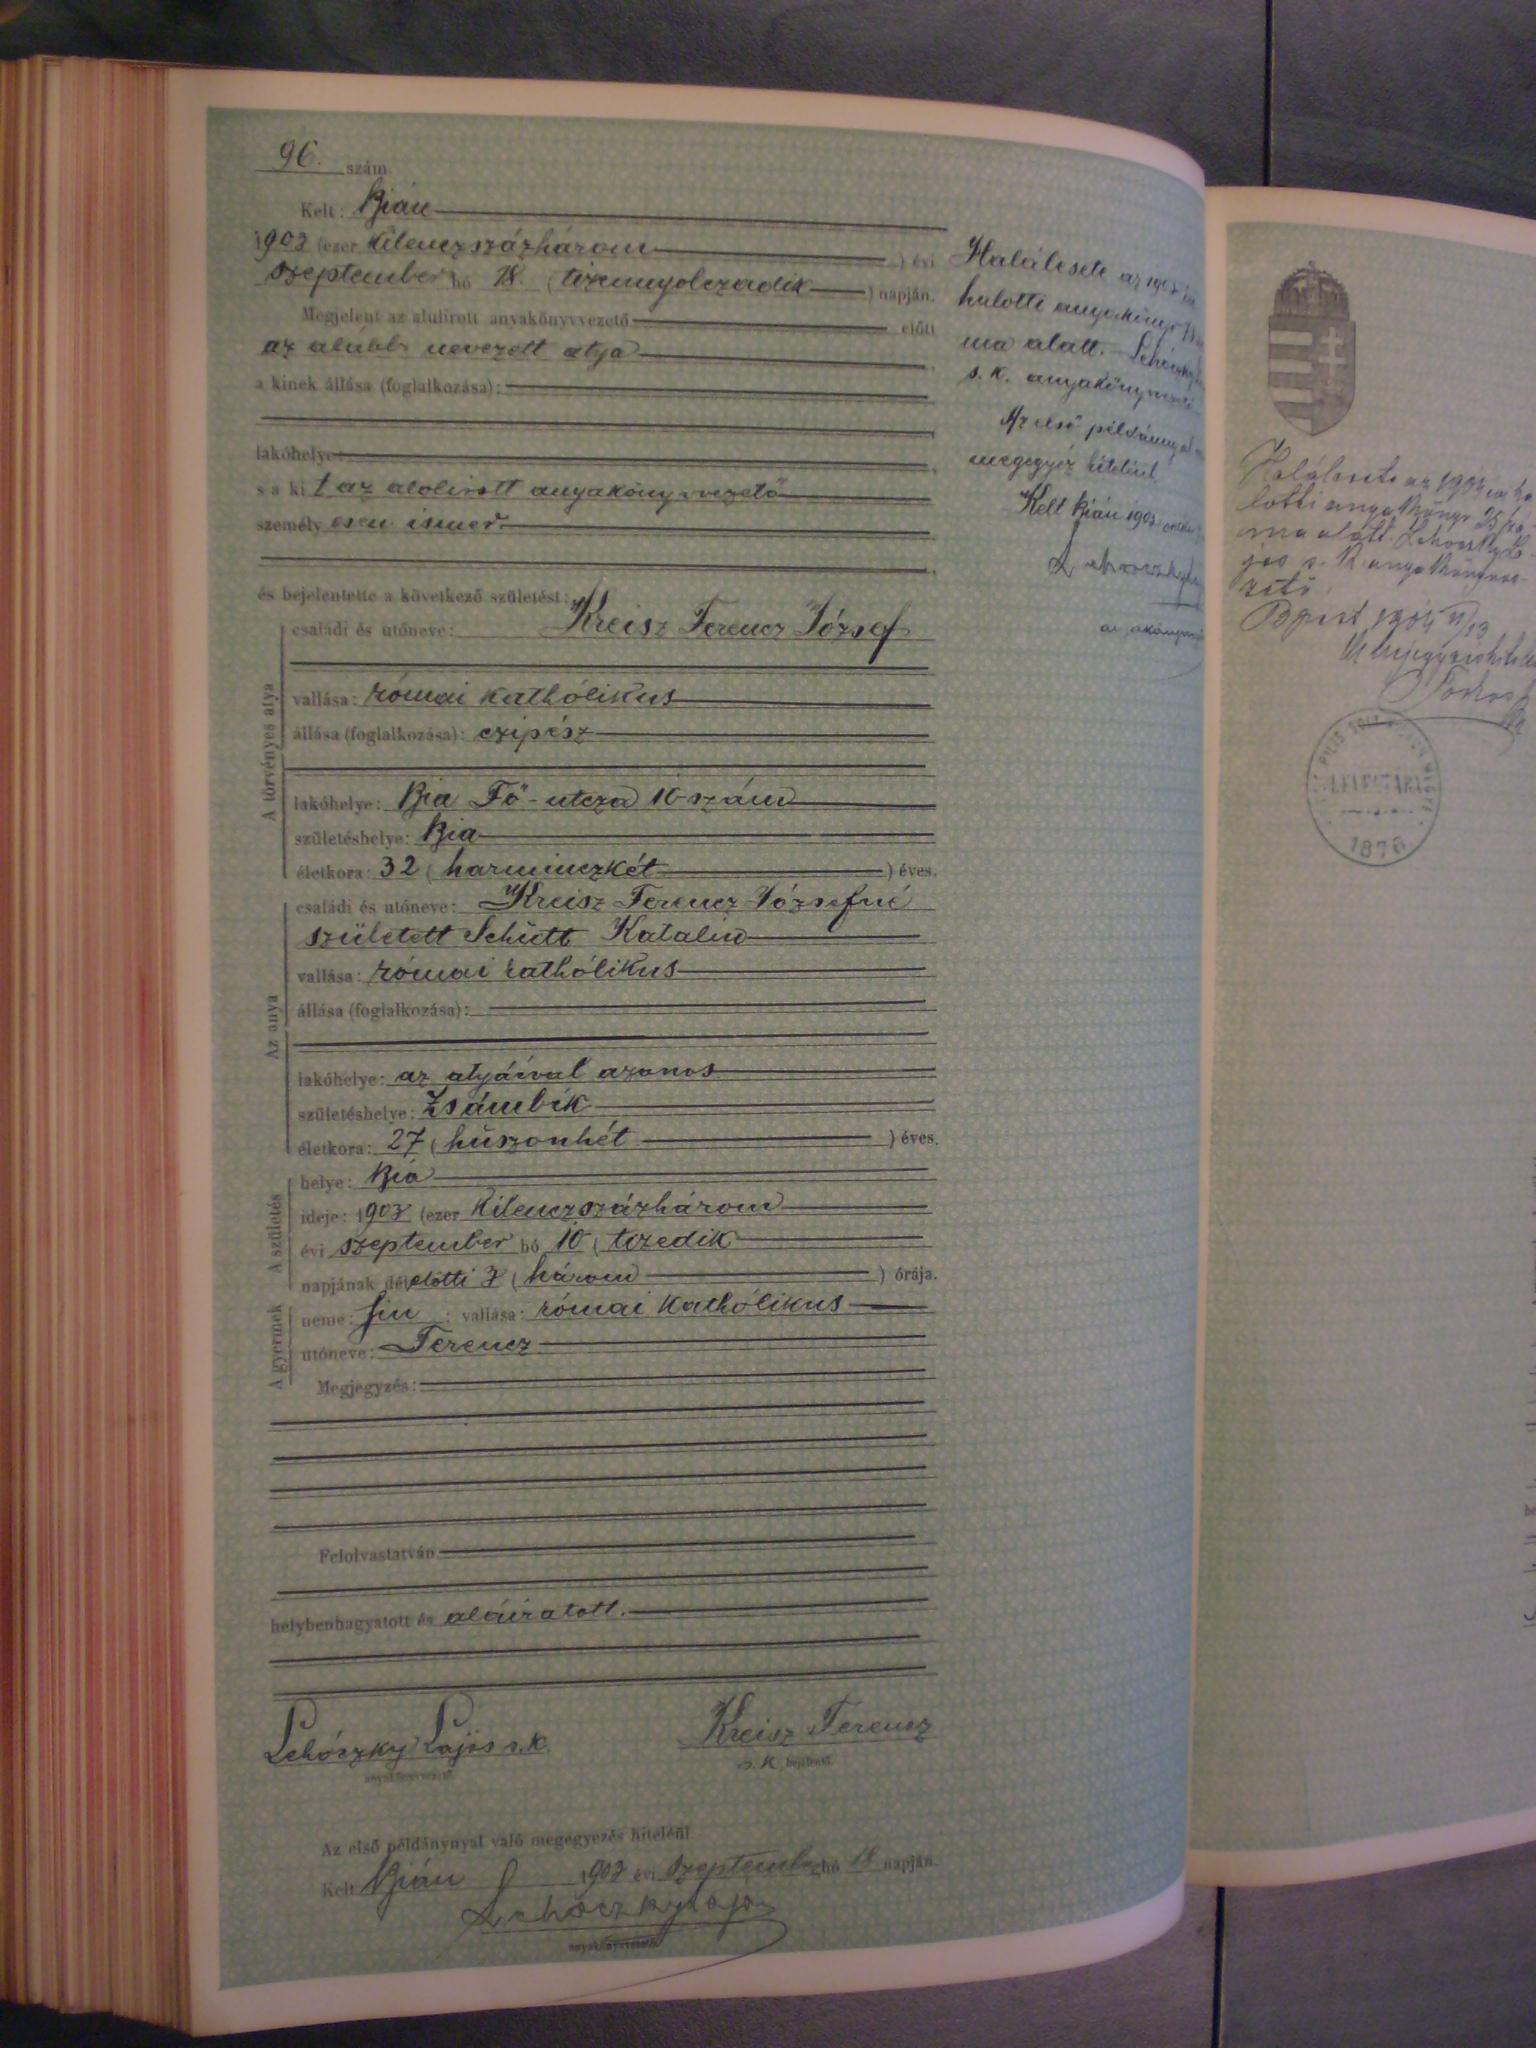 96. szám.
Kelt: Bián
1903 (ezer kilenczszázhárom ) évi
szeptember hó 18. (tizennyolczadik ) napján.
Megjelent az alulirott anyakönyvvezető előtt
az alább nevezett atya
a kinek állása (foglalkozása):
lakóhelye
s a ki t az alolirott anyakönyvvezető
személyesen ismer.
és bejelentette a következő születést:
A törvényes atya
családi és utóneve: Kreisz Ferencz József
vallása: római kathólikus
állása (foglalkozása): czipész
lakóhelye: Bia Fő-utcza 10 szám
születéshelye: Bia
életkora: 32 (harminczkét ) éves.
Az anya
családi és utóneve: Kreisz Ferencz Józsefné
született Schütt Katalin
vallása: római kathólikus
állása (foglalkozása):
lakóhelye: az atyáéval azonos
születéshelye: Zsámbék
életkora: 27 (húszonhét ) éves.
A születés
helye: Bia
ideje: 1903 (ezer kilenczszázhárom
évi szeptember hó 10 (tizedik
napjának délelőtti 3 (három ) órája.
A gyermek
neme: fiu ; vallása: római kathólikus
utóneve: Ferencz
Megjegyzés:
Felolvastatván
helybenhagyatott és aláiratott.
Lehóczky Lajos s.k. Kreisz Ferencz
anyakönyvvezető. s.k. bejelentő
Az első példánynyal való megegyezés hiteléül
Kelt Bián 1903 évi szeptember hó 18 napján.
Lehóczky Lajos
anyakönyvvezető
Halálesete az
halotti anyakönyv
ma alatt.
s.k. anyakönyvvezető
Az első példánnyal
megegyéz hiteléül
Kelt Bián
Halálesete az ha
lotti anyakönyv 25 szá
ma alatt. Lehoczky La
jos s. k. anyakönyvve
zető
Bpest
1876